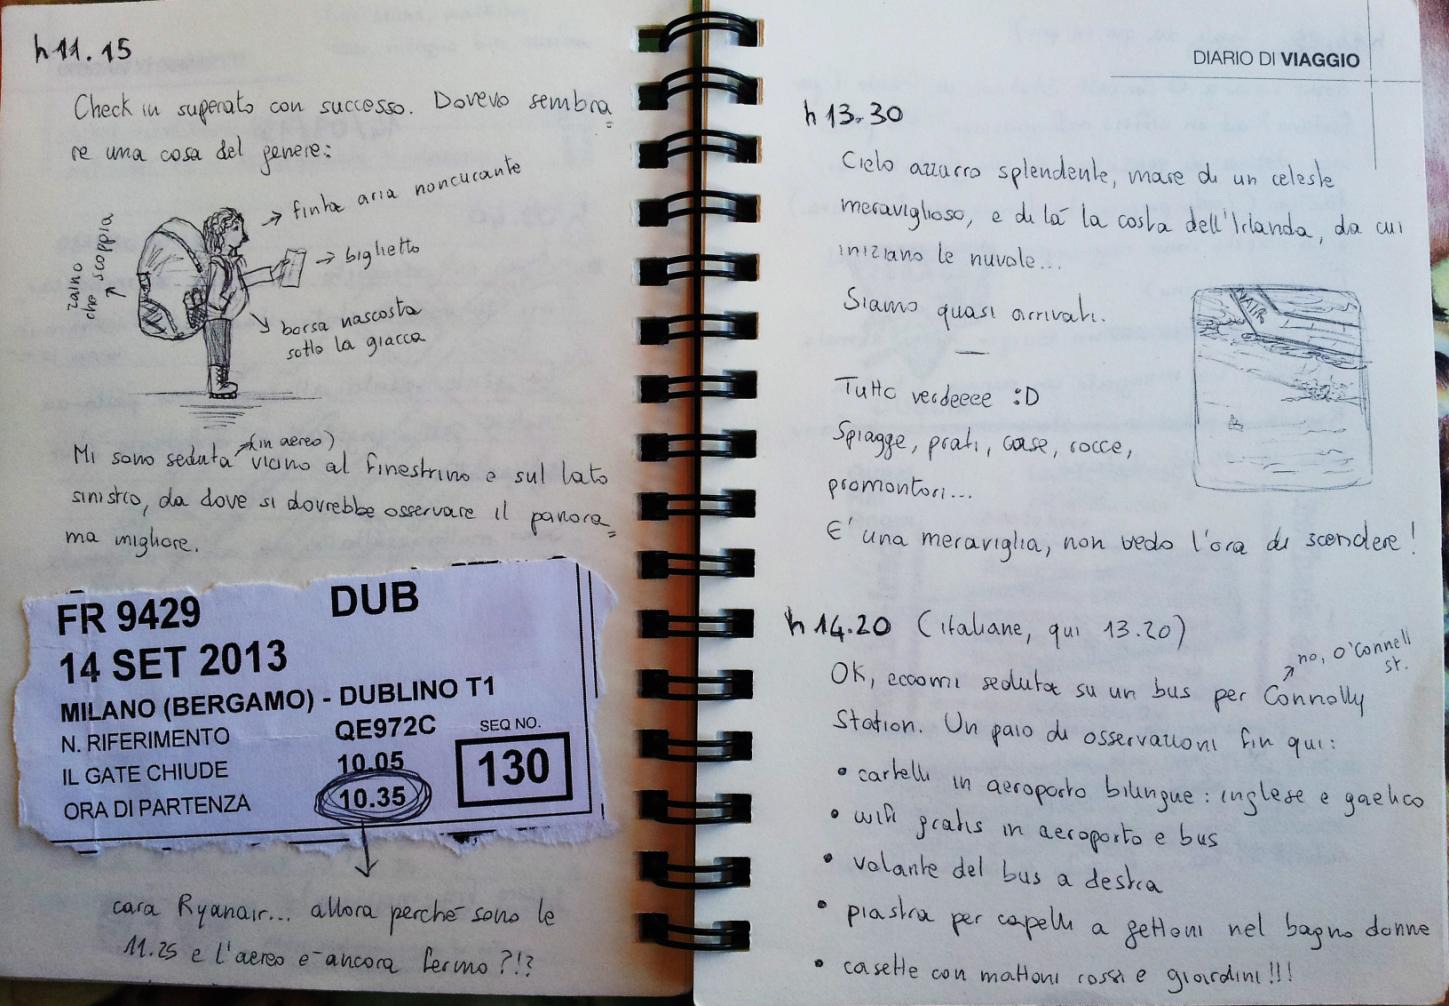 h 11.15
Check in superato con successo. Dovevo sembra=
re una cosa del genere:
→ finta aria noncurante
→ biglietto
zaino
che scoppia
borsa nascosta
sotto la giacca
(in aereo)
Mi sono seduta vicino al finestrino e sul lato
sinistro, da dove si dovrebbe osservare il panora=
ma migliore.
FR 9429 DUB
14 SET 2013
MILANO (BERGAMO) - DUBLINO T1
N. RIFERIMENTO QE972C SEQ NO.
IL GATE CHIUDE 10.05 130
ORA DI PARTENZA 10.35
cara Ryanair... allora perché sono le
11.25 e l'aereo è ancora fermo?!?
DIARIO DI VIAGGIO
h 13.30
Cielo azzurro splendente, mare di un celeste
meraviglioso, e di là la costa dell'Irlanda, da cui
iniziano le nuvole...
Siamo quasi arrivati.
—
NAIR
Tutto verdeeee :D
Spiagge, prati, case, rocce,
promontori...
E' una meraviglia, non vedo l'ora di scendere!
h 14.20 (italiane, qui 13.20)
no, O'Connell
st.
OK, eccomi seduta su un bus per Connolly
Station. Un paio di osservazioni fin qui:
• cartelli in aeroporto bilingue: inglese e gaelico
• wifi gratis in aeroporto e bus
• volante del bus a destra
• piastra per capelli a gettoni nel bagno donne
• casette con mattoni rossi e giardini!!!